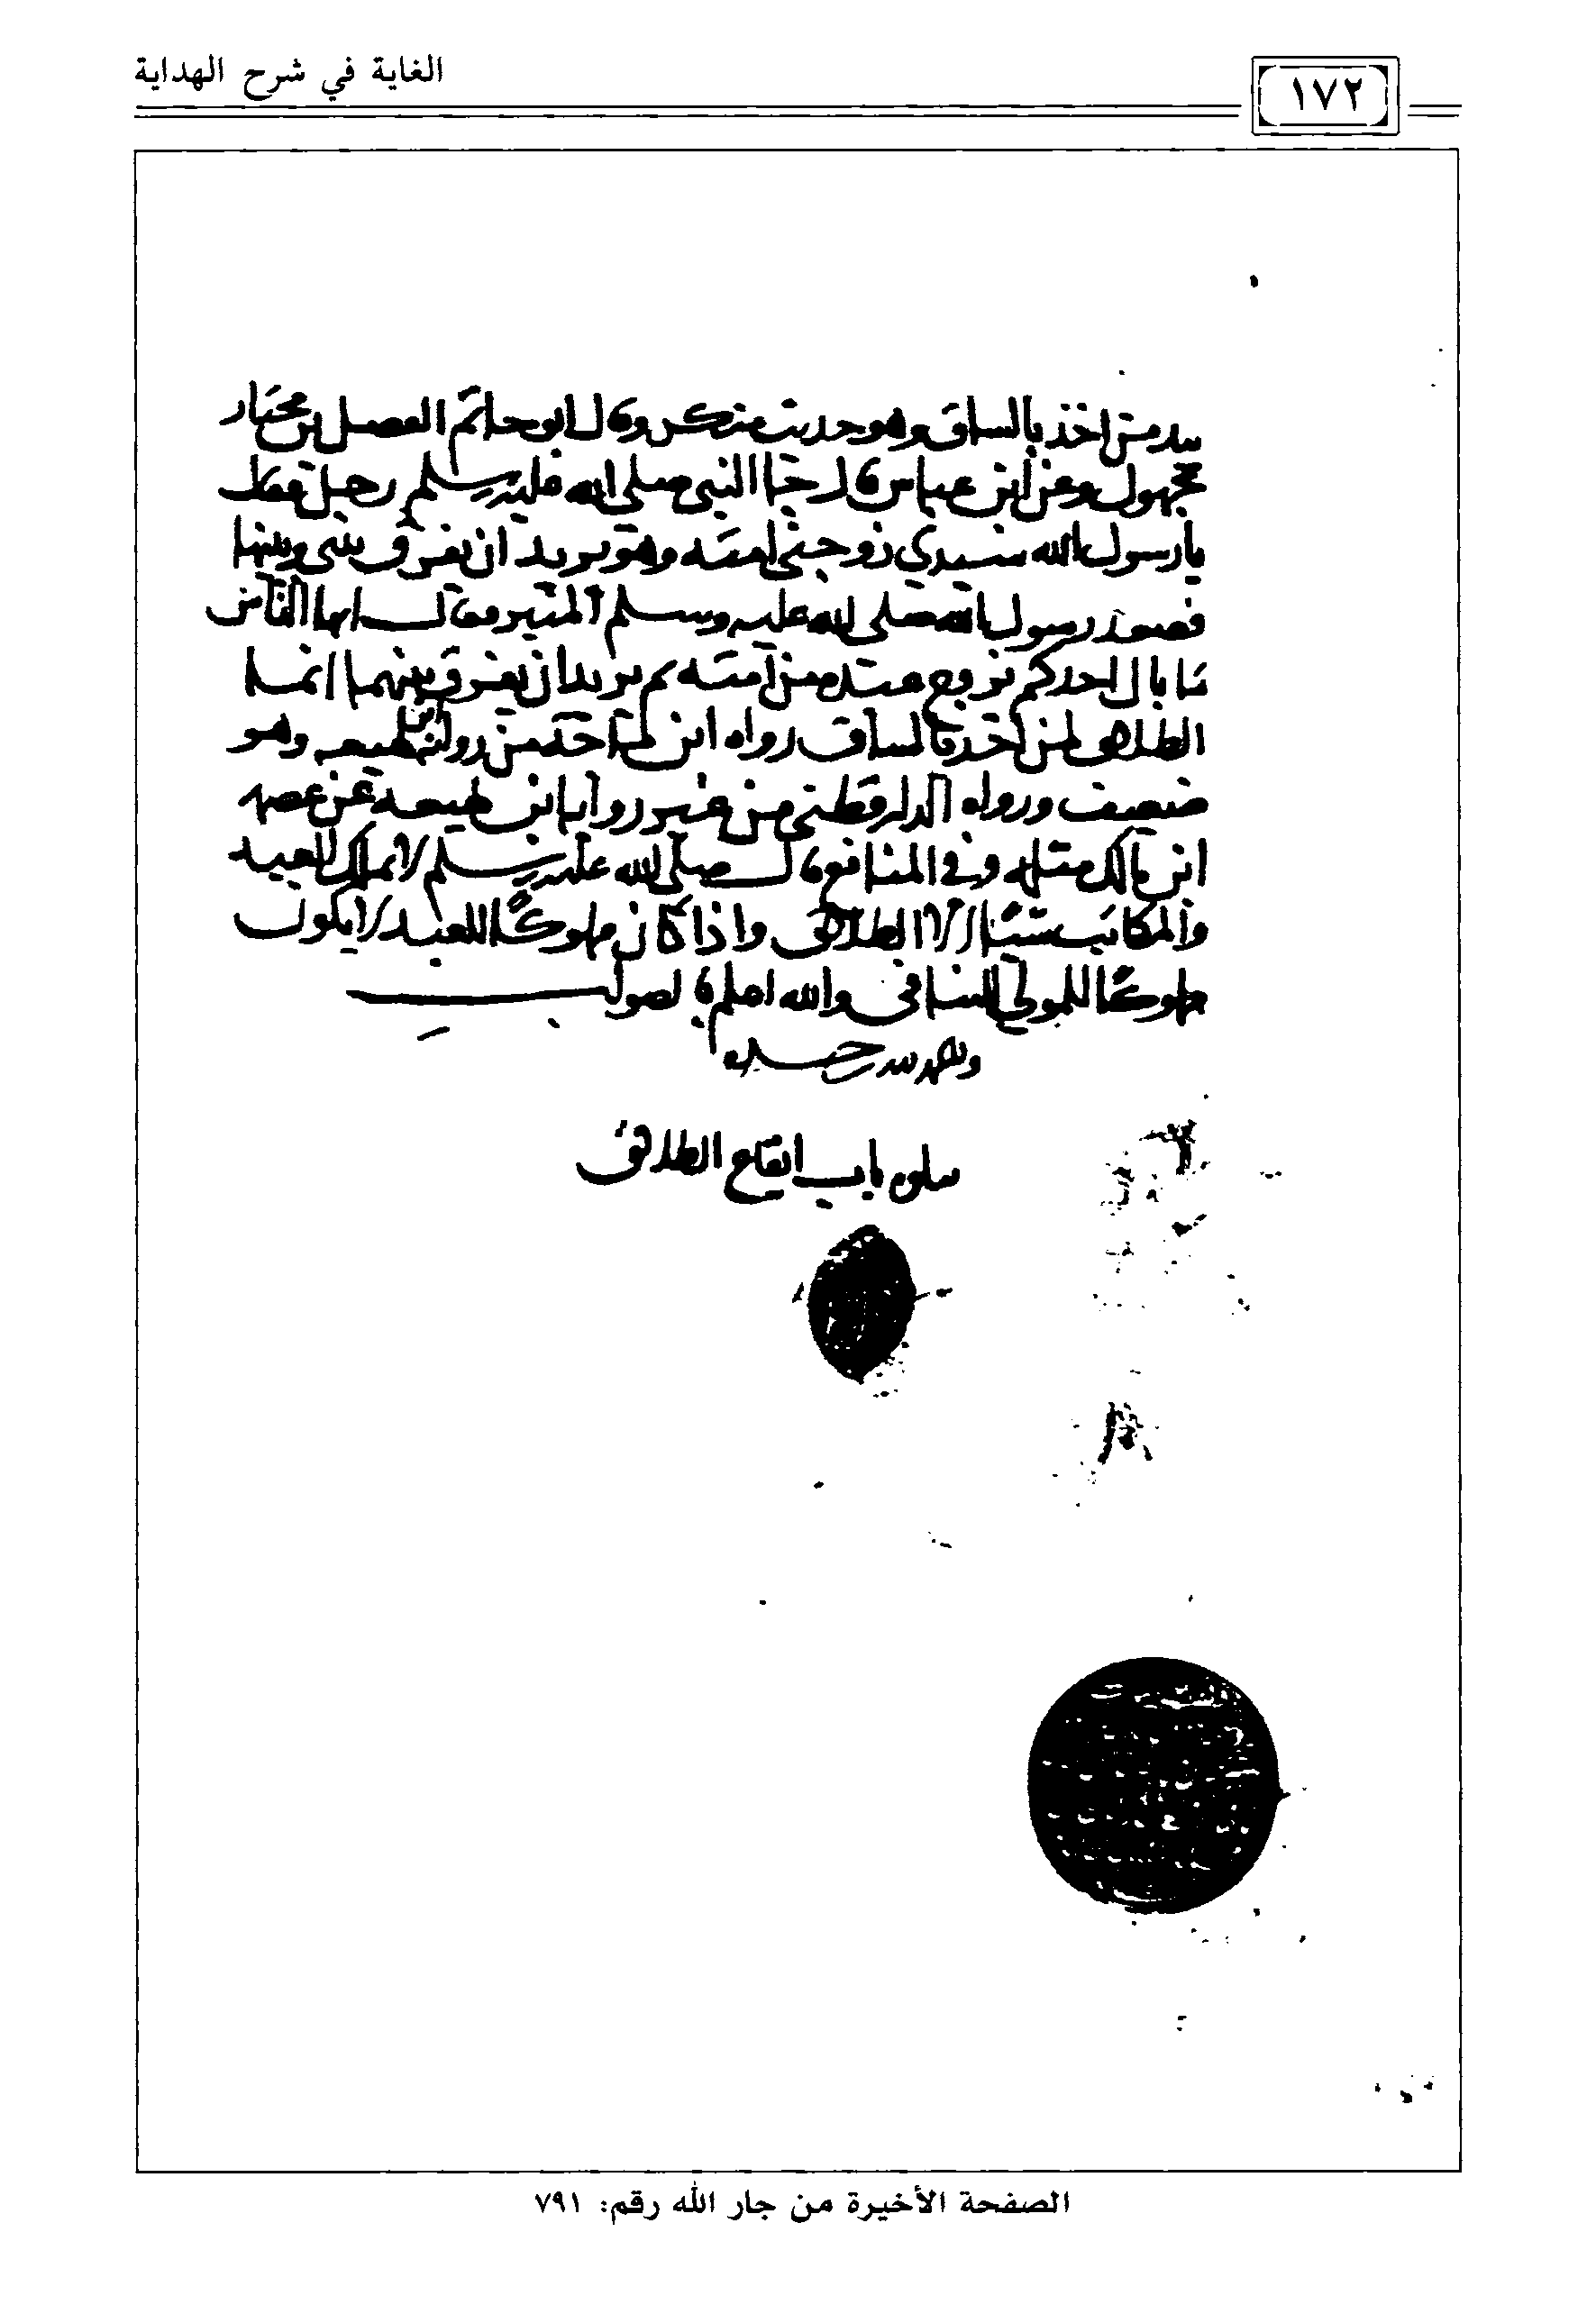 الغاية في شرح الهداية
١٧٢
بيد من اخذ بالساق وهو حديث منكر وقال ابو حاتم الفضل بن مختار
مجهول وعن ابن عباس قال جا النبي صلى الله عليه وسلم رجل فقال
يا رسول الله سيدي زوجني امته وهو يريد ان يفرق بيني وبينها
فصعد رسول الله صلى الله عليه وسلم المنبر وقال ايها الناس
ما بال احدكم يزوج عبده من امته ثم يريد ان يفرق بينهما انما
الطلاق لمن اخذ بالساق رواه ابن ماجة من رواية ابن لهيعه وهو
ضعيف ورواه الدارقطني من غير رواية ابن لهيعه عن عصمه
ابن مالك مثله وفي المنافع قال صلى الله عليه وسلم لا يملك العبد
والمكاتب شيئا الا الطلاق واذا كان مملوكا للعبد لا يكون
مملوكا للمولي للتنافي والله اعلم بالصواب
والحمد لله وحده
يتلوه باب ايقاع الطلاق
الصفحة الأخيرة من جار الله رقم: ٧٩١